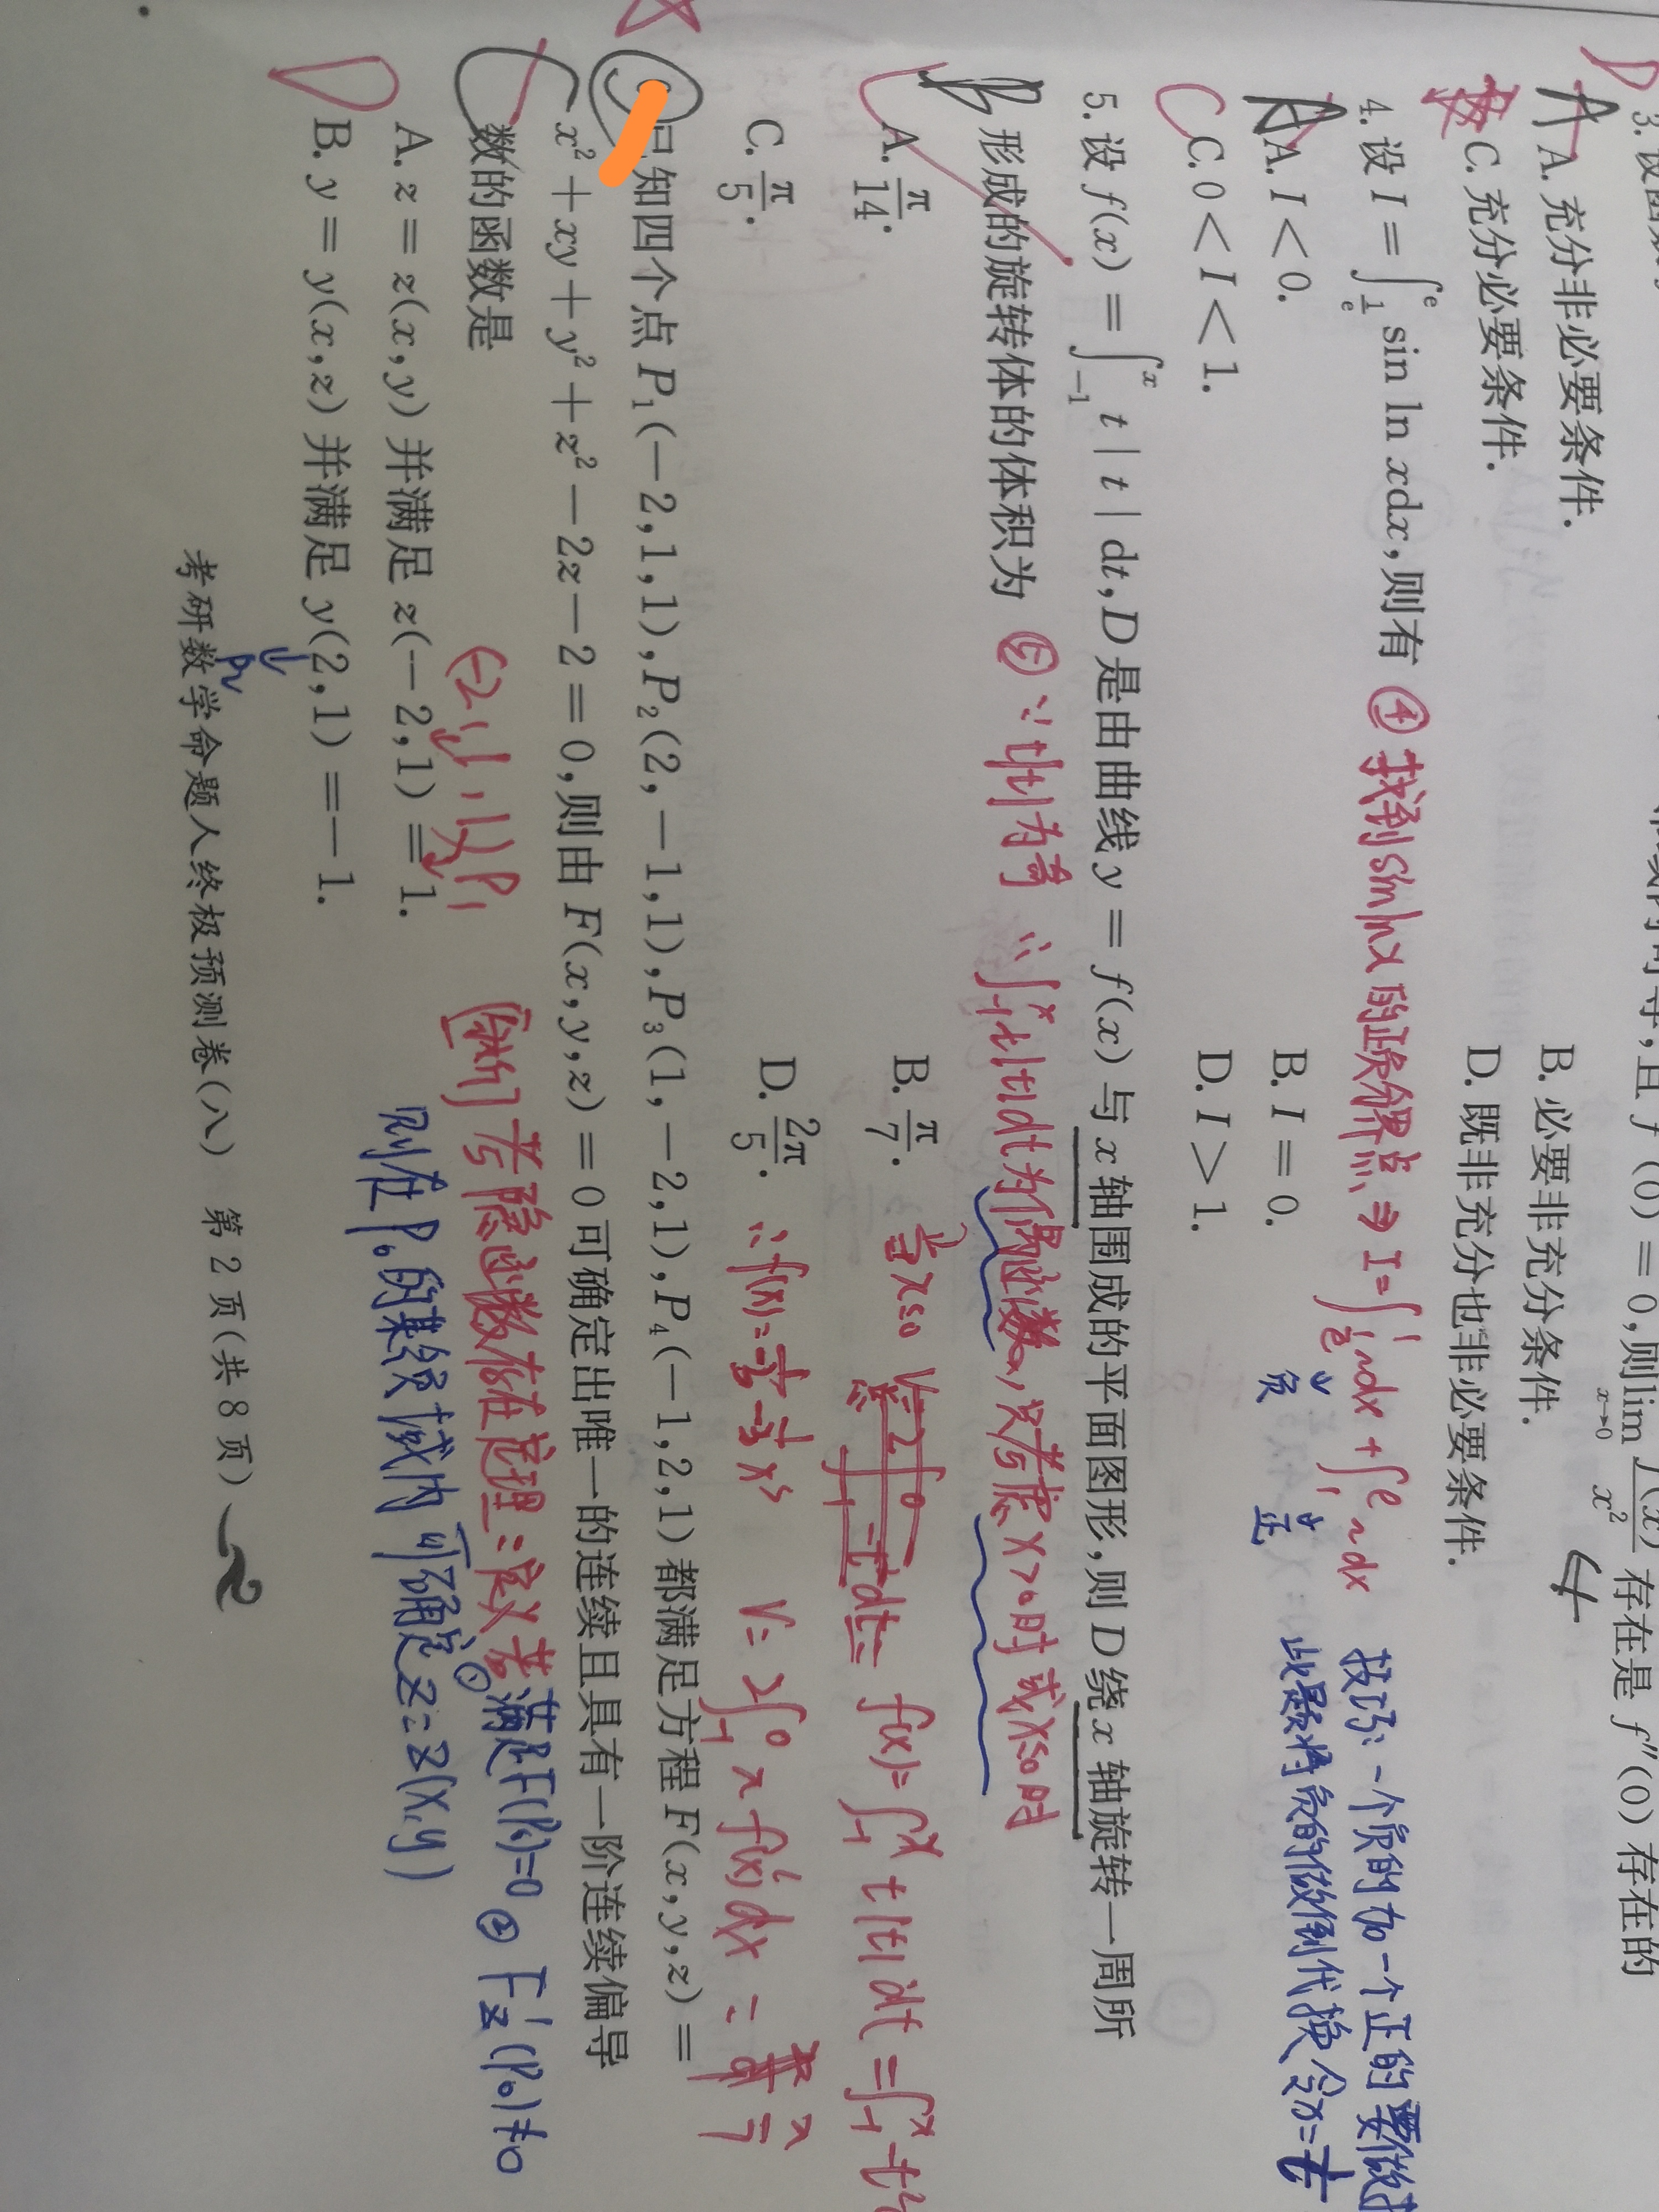 存在是 f″(0) 存在的
A. 充分非必要条件.
B. 必要非充分条件.
C. 充分必要条件.
D. 既非充分也非必要条件.
4. 设 I = ∫_{1/e}^{e} sin ln xdx,则有 ④ 找到sinlnx的正负分界点 ⇒ I=∫_{1/e}^{1} ~dx + ∫_{1}^{e} ~dx
负 正
技巧:一个负的加一个正的要做
此题将负的做倒代换 令x=1/t
A. I < 0.
B. I = 0.
C. 0 < I < 1.
D. I > 1.
5. 设 f(x) = ∫_{-1}^{x} t | t | dt,D 是由曲线 y = f(x) 与 x 轴围成的平面图形,则 D 绕 x 轴旋转一周所
形成的旋转体的体积为 ⑤ ∵t|t|为奇 ∴∫_{-1}^{x} t|t|dt为偶函数,只考虑x>0时或x≤0时
A. π/14.
B. π/7.
当x≤0
f(x)=∫_{-1}^{x} t|t|dt=∫_{-1}^{x} -t²
C. π/5.
D. 2π/5.
∴f(x)=-1/3-1/3x³
V=2∫_{-1}^{0} π·f(x)²dx =
已知四个点 P₁(−2,1,1),P₂(2,−1,1),P₃(1,−2,1),P₄(−1,2,1) 都满足方程 F(x,y,z) =
x² + xy + y² + z² − 2z − 2 = 0,则由 F(x,y,z) = 0 可确定出唯一的连续且具有一阶连续偏导
数的函数是
(-2,1,1)P₁
[分析] 考隐函数存在定理:定义 若①满足F(P₀)=0 ② F′z(P₀)≠0
则在P₀的某邻域内可确定z=z(x,y)
A. z = z(x,y) 并满足 z(−2,1) = 1.
B. y = y(x,z) 并满足 y(2,1) = −1.
P₂
考研数学命题人终极预测卷(八) 第 2 页(共 8 页)